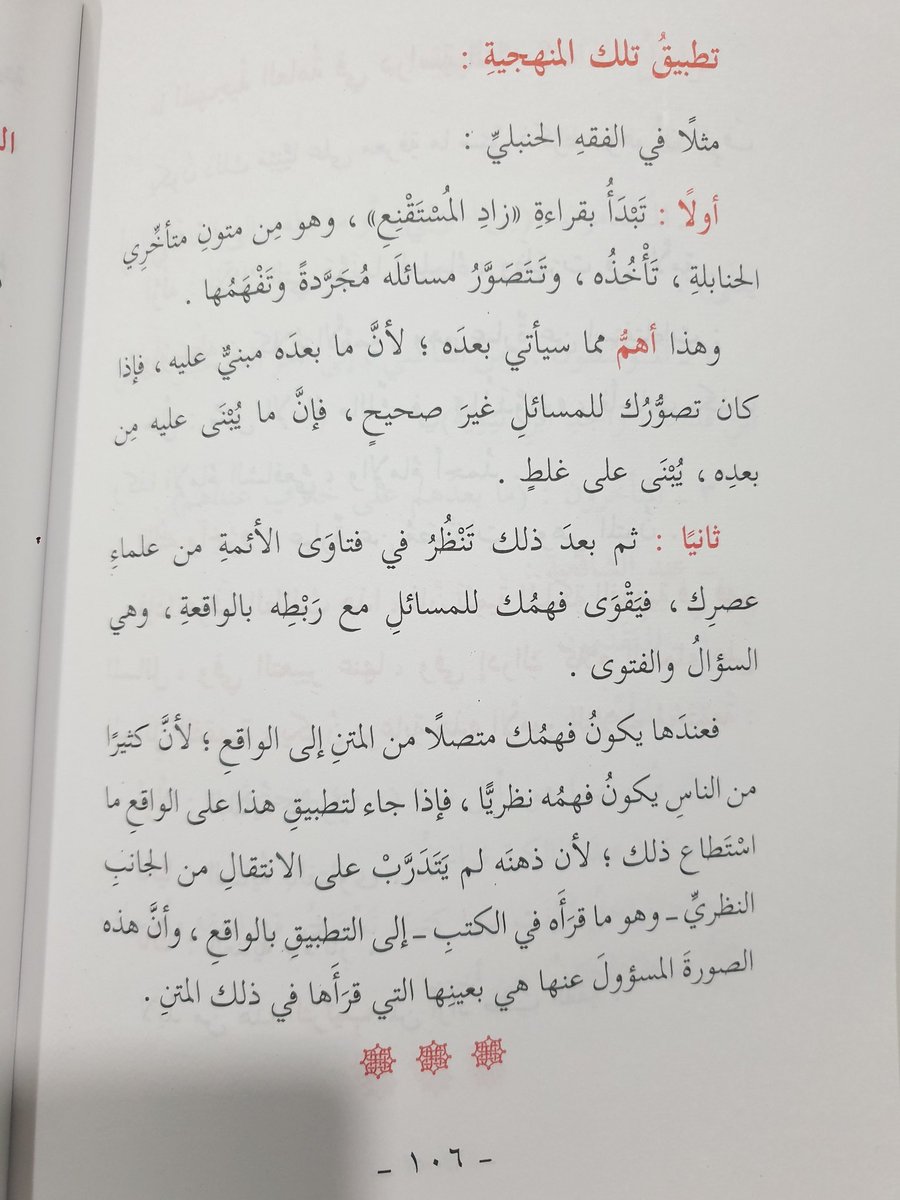 تطبيقُ تلك المنهجيةِ :
مثلًا في الفقهِ الحنبليِّ :
أولًا : تَبْدَأُ بقراءةِ «زادِ المُسْتَقْنِعِ» ، وهو مِن متونِ متأخِّرِي
الحنابلةِ ، تَأْخُذُه ، وتَتَصَوَّرُ مسائلَه مُجَرَّدةً وتَفْهَمُها .
وهذا أهمُّ مما سيأتي بعدَه ؛ لأنَّ ما بعدَه مبنيٌّ عليه ، فإذا
كان تصوُّرُك للمسائلِ غيرَ صحيحٍ ، فإنَّ ما يُبْنَى عليه مِن
بعدِه ، يُبْنَى على غلطٍ .
ثانيًا : ثم بعدَ ذلك تَنْظُرُ في فتاوَى الأئمةِ من علماءِ
عصرِك ، فيَقْوَى فهمُك للمسائلِ مع رَبْطِه بالواقعةِ ، وهي
السؤالُ والفتوى .
فعندَها يكونُ فهمُك متصلًا من المتنِ إلى الواقعِ ؛ لأنَّ كثيرًا
من الناسِ يكونُ فهمُه نظريًّا ، فإذا جاء لتطبيقِ هذا على الواقعِ ما
اسْتَطاع ذلك ؛ لأن ذهنَه لم يَتَدَرَّبْ على الانتقالِ من الجانبِ
النظريِّ ـ وهو ما قرَأَه في الكتبِ ـ إلى التطبيقِ بالواقعِ ، وأنَّ هذه
الصورةَ المسؤولَ عنها هي بعينِها التي قرَأَها في ذلك المتنِ .
- ١٠٦ -